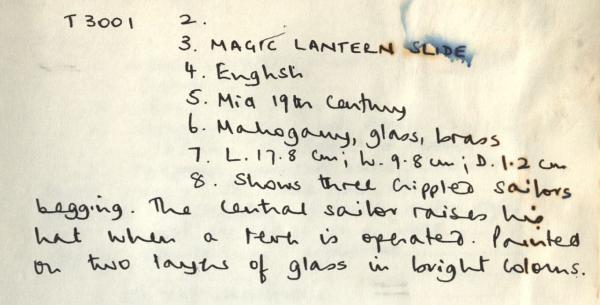 T 3001 2.
3. MAGIC LANTERN SLIDE
4. English
5. Mid 19th Century
6. Mahogany, glass, brass
7. L. 17.8 cm; W. 9.8 cm; D. 1.2 cm
8. Shows three crippled sailors
begging. The central sailor raises his
hat when a lever is operated. Painted
on two layers of glass in bright colours.